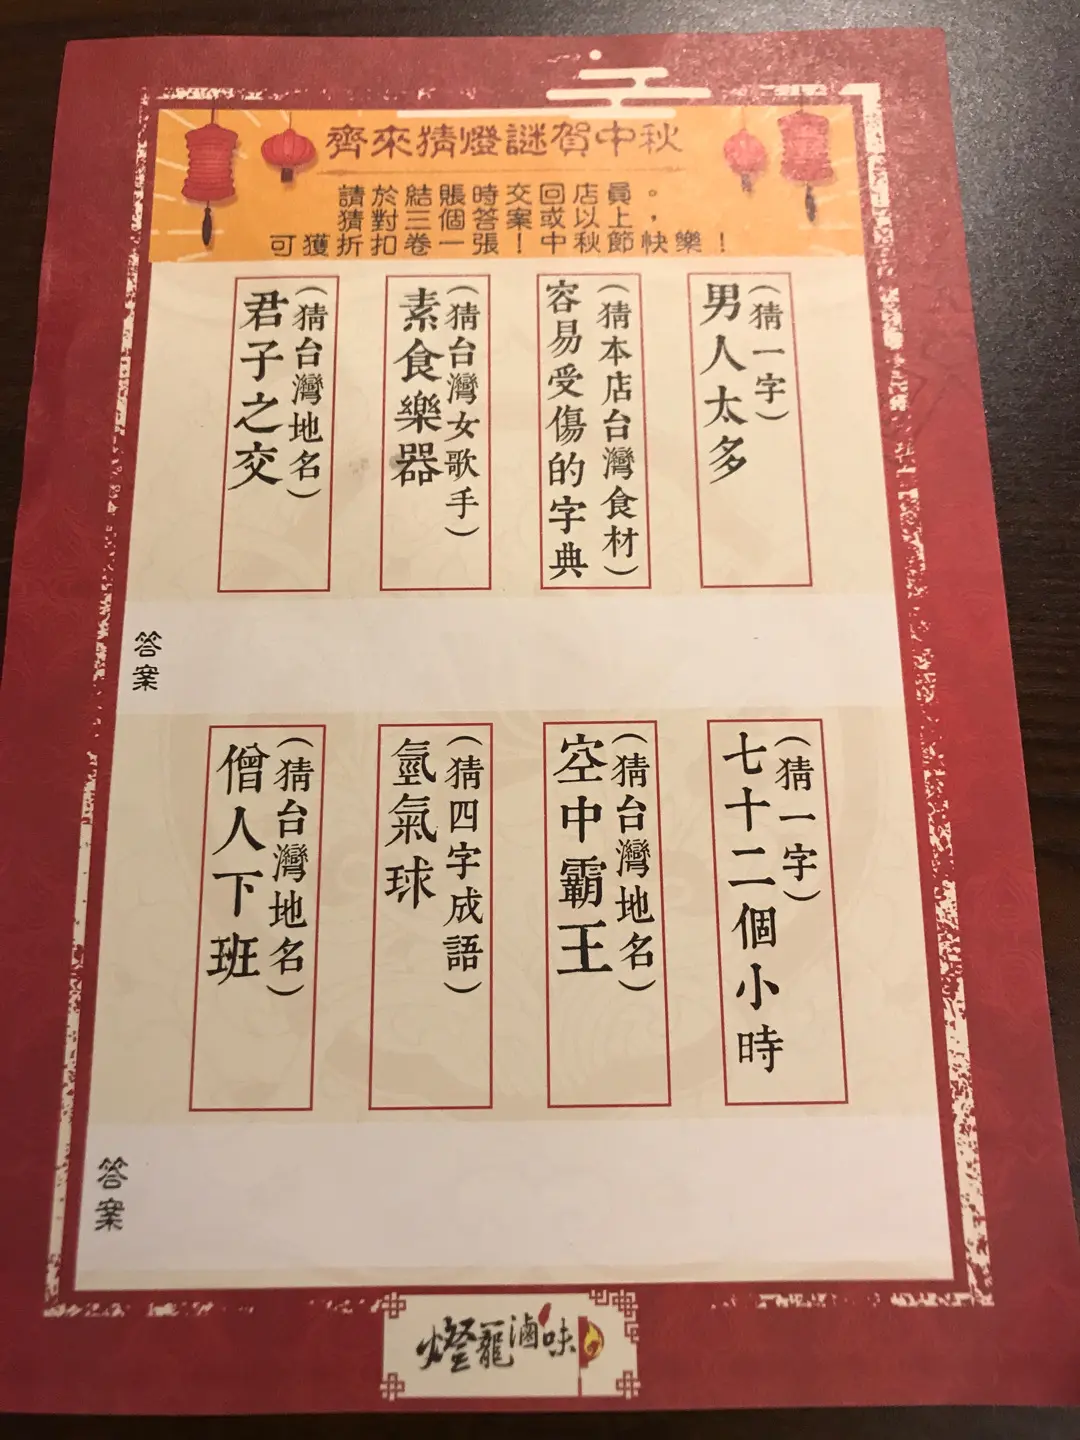 齊來猜燈謎賀中秋
請於結賬時交回店員。
猜對三個答案或以上，
可獲折扣卷一張！中秋節快樂！
（猜一字）
男人太多
（猜本店台灣食材）
容易受傷的字典
（猜台灣女歌手）
素食樂器
（猜台灣地名）
君子之交
答案
（猜一字）
七十二個小時
（猜台灣地名）
空中霸王
（猜四字成語）
氫氣球
（猜台灣地名）
僧人下班
答案
燈籠滷味